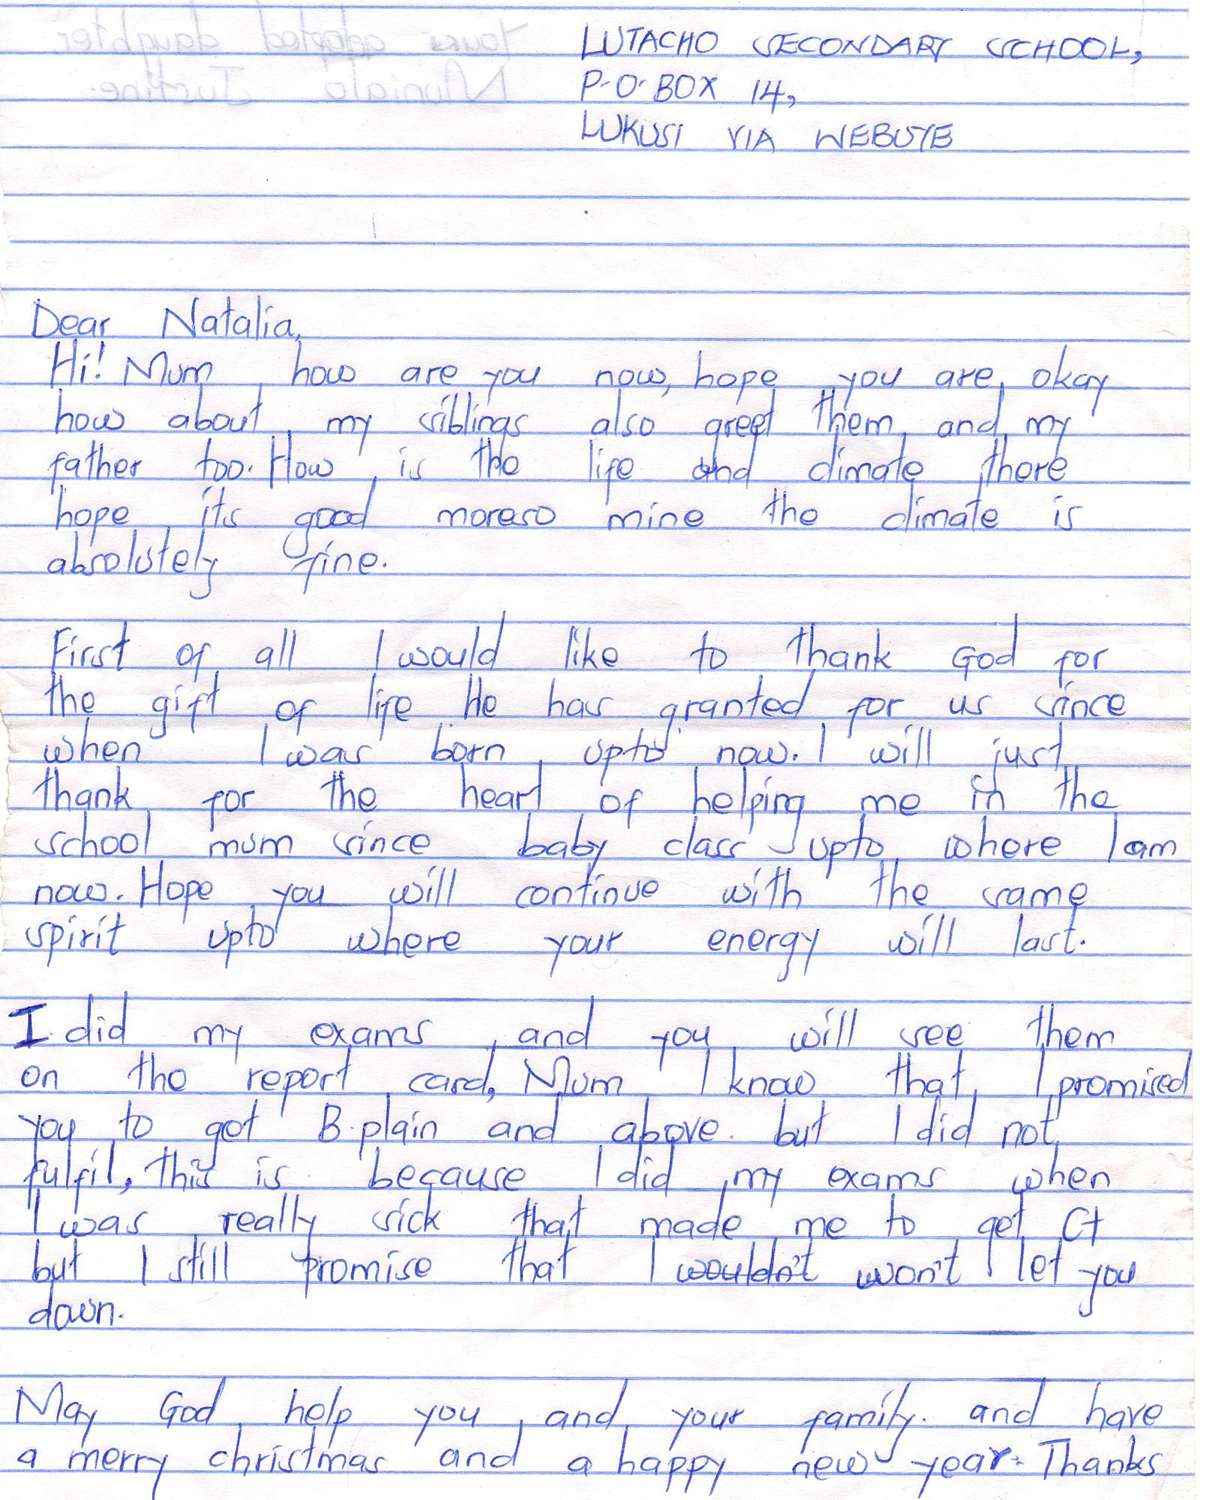 LUTACHO SECONDARY SCHOOL,
P.O. BOX 14,
LUKUSI VIA WEBUYE
Dear Natalia,
Hi! Mum, how are you now, hope you are okay
how about my siblings also greet them, and my
father too. How is the life and climate there
hope its good moreso mine the climate is
absolutely fine.
First of all I would like to thank God for
the gift of life He has granted for us since
when I was born upto now. I will just
thank for the heart of helping me in the
school mum since baby class upto where I am
now. Hope you will continue with the same
spirit upto where your energy will last.
I did my exams, and you will see them
on the report card, Mum I know that I promised
you to get B.plain and above. but I did not
fulfil, this is because I did my exams when
I was really sick that made me to get C+
but I still promise that I wouldn't won't let you
down.
May God help you, and your family. and have
a merry christmas and a happy new year. Thanks
Yours adopted daughter
Muniala Justine.